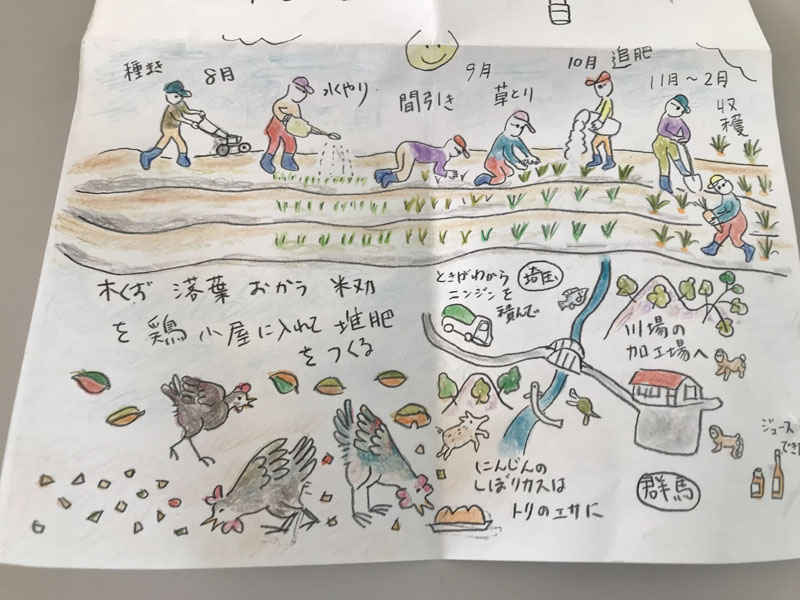 種まき
8月
水やり
9月
間引き
草とり
10月 追肥
11月～2月
収穫
木くず 落葉 おから 籾
を 鶏小屋に入れて 堆肥
をつくる
ときがわから
ニンジンを
積んで
埼玉
川場の
加工場へ
ジュース
にんじんの
しぼりカスは
トリのエサに
群馬